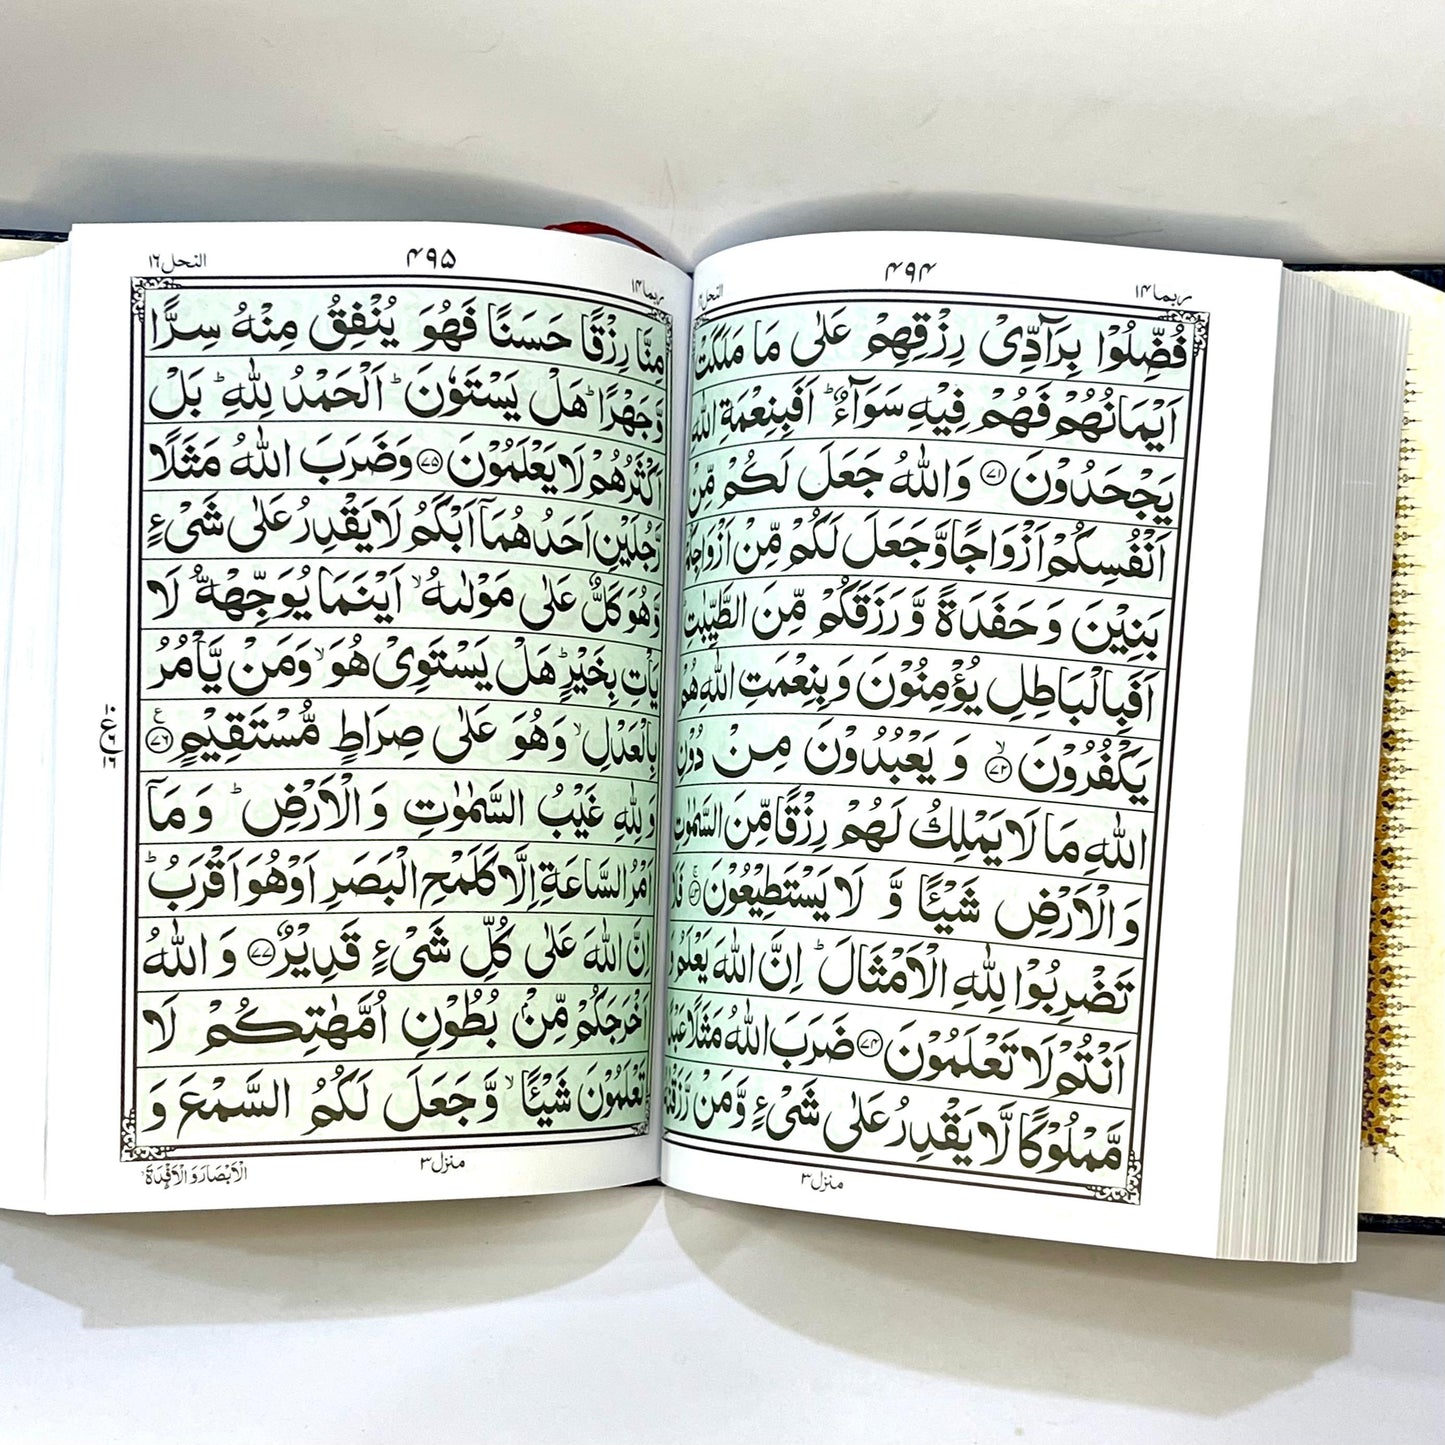 ربما ۱۴
۴۹۴
النحل ۱۶
فُضِّلُوْا بِرَآدِّیْ رِزْقِهِمْ عَلٰی مَا مَلَكَتْ
اَیْمَانُهُمْ فَهُمْ فِیْهِ سَوَآءٌ ؕ اَفَبِنِعْمَةِ اللّٰهِ
یَجْحَدُوْنَ ۷۱ وَاللّٰهُ جَعَلَ لَكُمْ مِّنْ
اَنْفُسِكُمْ اَزْوَاجًا وَّجَعَلَ لَكُمْ مِّنْ اَزْوَاجِكُمْ
بَنِیْنَ وَحَفَدَةً وَّرَزَقَكُمْ مِّنَ الطَّیِّبٰتِ ؕ
اَفَبِالْبَاطِلِ یُؤْمِنُوْنَ وَبِنِعْمَتِ اللّٰهِ هُمْ
یَكْفُرُوْنَ ۙ۷۲ وَیَعْبُدُوْنَ مِنْ دُوْنِ
اللّٰهِ مَا لَا یَمْلِكُ لَهُمْ رِزْقًا مِّنَ السَّمٰوٰتِ
وَالْاَرْضِ شَیْـًٔا وَّلَا یَسْتَطِیْعُوْنَ ۚ۷۳ فَلَا
تَضْرِبُوْا لِلّٰهِ الْاَمْثَالَ ؕ اِنَّ اللّٰهَ یَعْلَمُ وَ
اَنْتُمْ لَا تَعْلَمُوْنَ ۷۴ ضَرَبَ اللّٰهُ مَثَلًا عَبْدًا
مَّمْلُوْكًا لَّا یَقْدِرُ عَلٰی شَیْءٍ وَّمَنْ رَّزَقْنٰهُ
منزل ۳
ربما ۱۴
۴۹۵
النحل ۱۶
مِنَّا رِزْقًا حَسَنًا فَهُوَ یُنْفِقُ مِنْهُ سِرًّا
وَّجَهْرًا ؕ هَلْ یَسْتَوٗنَ ؕ اَلْحَمْدُ لِلّٰهِ ؕ بَلْ
اَكْثَرُهُمْ لَا یَعْلَمُوْنَ ۷۵ وَضَرَبَ اللّٰهُ مَثَلًا
رَّجُلَیْنِ اَحَدُهُمَاۤ اَبْكَمُ لَا یَقْدِرُ عَلٰی شَیْءٍ
وَّهُوَ كَلٌّ عَلٰی مَوْلٰىهُ ۙ اَیْنَمَا یُوَجِّهْهُّ لَا
یَاْتِ بِخَیْرٍ ؕ هَلْ یَسْتَوِیْ هُوَ ۙ وَمَنْ یَّاْمُرُ
بِالْعَدْلِ ۙ وَهُوَ عَلٰی صِرَاطٍ مُّسْتَقِیْمٍ ۷۶ ع
وَلِلّٰهِ غَیْبُ السَّمٰوٰتِ وَالْاَرْضِ ؕ وَمَاۤ
اَمْرُ السَّاعَةِ اِلَّا كَلَمْحِ الْبَصَرِ اَوْ هُوَ اَقْرَبُ ؕ
اِنَّ اللّٰهَ عَلٰی كُلِّ شَیْءٍ قَدِیْرٌ ۷۷ وَاللّٰهُ
اَخْرَجَكُمْ مِّنْۢ بُطُوْنِ اُمَّهٰتِكُمْ لَا
تَعْلَمُوْنَ شَیْـًٔا ۙ وَّجَعَلَ لَكُمُ السَّمْعَ وَ
منزل ۳
الْاَبْصَارَ وَالْاَفْـِٕدَةَ ۙ